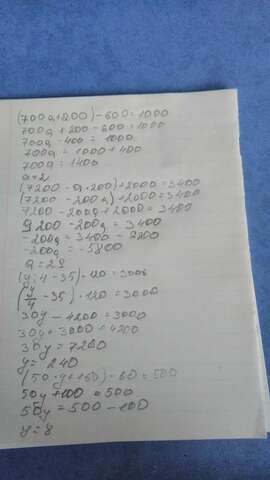 (700a+200)-600=1000
700a+200-600=1000
700a-400=1000
700a=1000+400
700a=1400
a=2
(7200-a·200)+2000=3400
(7200-200a)+2000=3400
7200-200a+2000=3400
9200-200a=3400
-200a=3400-9200
-200a=-5800
a=29
(y:4-35)·120=3000
(y/4-35)·120=3000
30y-4200=3000
30y=3000+4200
30y=7200
y=240
(50·y+160)-60=500
50y+100=500
50y=500-100
y=8